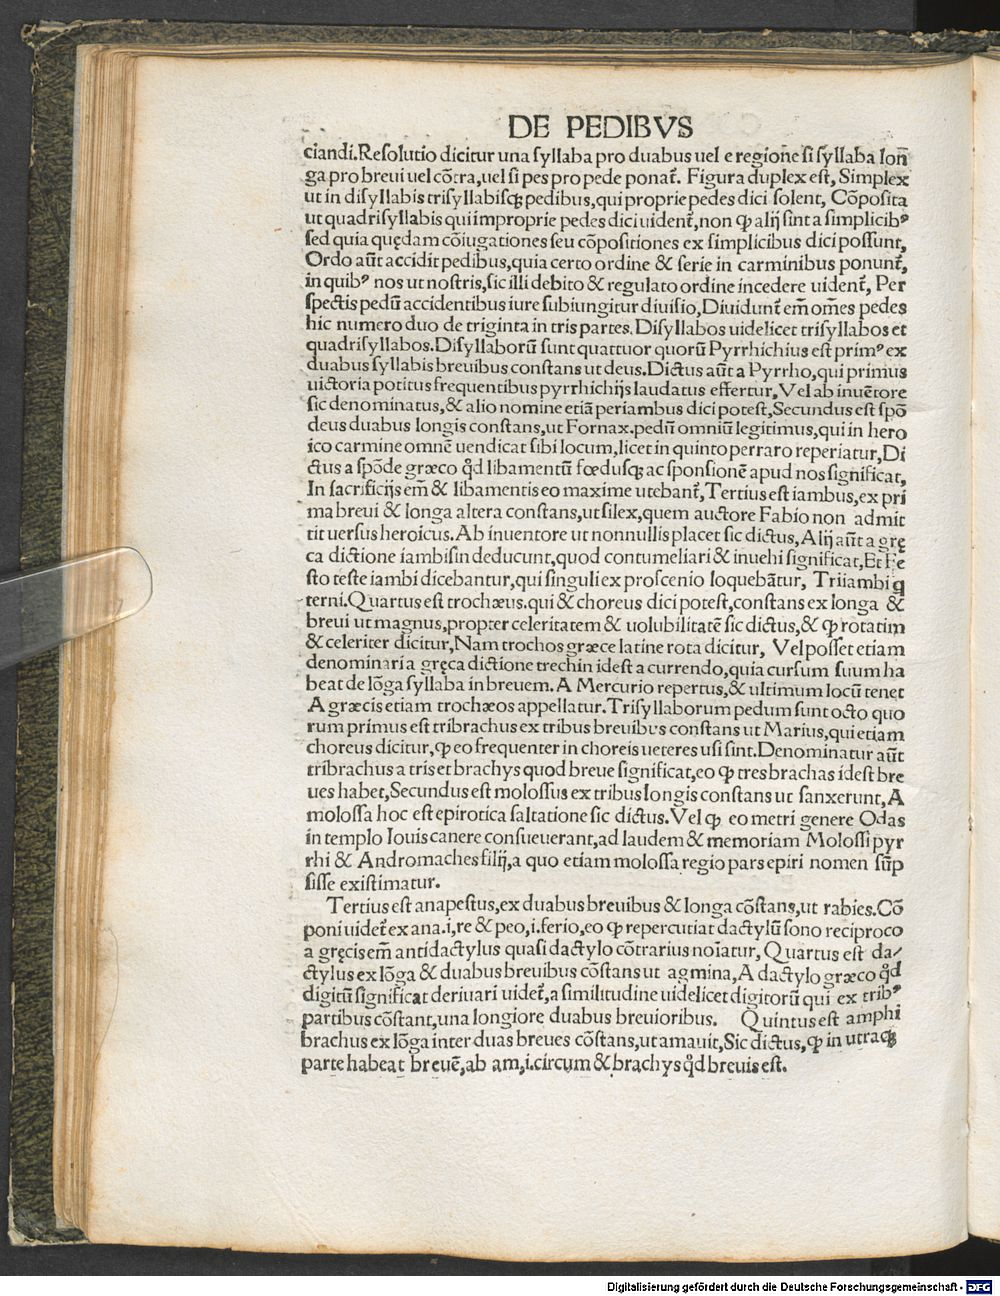 DE PEDIBVS
ciandi.Resolutio dicitur una syllaba pro duabus uel e regione si syllaba lon̄
ga pro breui uel cōtra,uel si pes pro pede ponat̃. Figura duplex est, Simplex
ut in disyllabis trisyllabisqꝫ pedibus,qui proprie pedes dici solent, Cōposita
ut quadrisyllabis qui improprie pedes dici uident̃,non ꝙ alij sint a simplicibꝰ
sed quia quędam cōiugationes seu cōpositiones ex simplicibus dici possunt,
Ordo aūt accidit pedibus,quia certo ordine & serie in carminibus ponunt̃,
in quibꝰ nos ut nostris,sic illi debito & regulato ordine incedere uident̃, Per
spectis pedū accidentibus iure subiungitur diuisio,Diuidunt̃ em̄ om̄es pedes
hic numero duo de triginta in tris partes.Disyllabos uidelicet trisyllabos et
quadrisyllabos.Disyllaborū sunt quattuor quorū Pyrrhichius est primꝰ ex
duabus syllabis breuibus constans ut deus.Dictus aūt a Pyrrho,qui primus
uictoria potitus frequentibus pyrrhichijs laudatus effertur,Vel ab inuētore
sic denominatus,& alio nomine etiā periambus dici potest,Secundus est spō
deus duabus longis constans,ut Fornax.pedū omniū legitimus,qui in hero
ico carmine omnē uendicat sibi locum,licet in quinto perraro reperiatur,Di
ctus a spōde græco qd̃ libamentū fœdusqꝫ ac sponsionē apud nos significat,
In sacrificijs em̄ & libamentis eo maxime utebant̃,Tertius est iambus,ex pri
ma breui & longa altera constans,ut silex,quem auctore Fabio non admit
tit uersus heroicus.Ab inuentore ut nonnullis placet sic dictus,Alij aūt a grę
ca dictione iambisin deducunt,quod contumeliari & inuehi significat,Et Fe
sto teste iambi dicebantur,qui singuli ex proscenio loquebātur, Triiambi q
terni.Quartus est trochæus.qui & choreus dici potest,constans ex longa &
breui ut magnus,propter celeritatem & uolubilitatē sic dictus,& ꝙ rotatim
& celeriter dicitur,Nam trochos græce latine rota dicitur, Vel posset etiam
denominari a gręca dictione trechin idest a currendo,quia cursum suum ha
beat de lōga syllaba in breuem.A Mercurio repertus,& ultimum locū tenet
A græcis etiam trochæos appellatur.Trisyllaborum pedum sunt octo quo
rum primus est tribrachus ex tribus breuibus constans ut Marius,qui etiam
choreus dicitur,ꝙ eo frequenter in choreis ueteres usi sint.Denominatur aūt
tribrachus a tris et brachys quod breue significat,eo ꝙ tres brachas idest bre
ues habet,Secundus est molossus ex tribus longis constans ut sanxerunt,A
molossa hoc est epirotica saltatione sic dictus.Vel ꝙ eo metri genere Odas
in templo Iouis canere consueuerant,ad laudem & memoriam Molossi pyr
rhi & Andromaches filij,a quo etiam molossa regio pars epiri nomen sūp
sisse existimatur.
Tertius est anapestus,ex duabus breuibus & longa cōstans,ut rabies.Cō
poni uidet̃ ex ana.i,re & peo,i.ferio,eo ꝙ repercutiat dactylū sono reciproco
a gręcis em̄ antidactylus quasi dactylo cōtrarius noīatur, Quartus est da/
ctylus ex lōga & duabus breuibus cōstans ut agmina,A dactylo græco qd̃
digitū significat deriuari uidet̃,a similitudine uidelicet digitorū qui ex tribꝰ
partibus cōstant,una longiore duabus breuioribus. Quintus est amphi
brachus ex lōga inter duas breues cōstans,ut amauit,Sic dictus,ꝙ in utraqꝫ
parte habeat breuē,ab am,i.circum & brachys qd̃ breuis est.
Digitalisierung gefördert durch die Deutsche Forschungsgemeinschaft - DFG